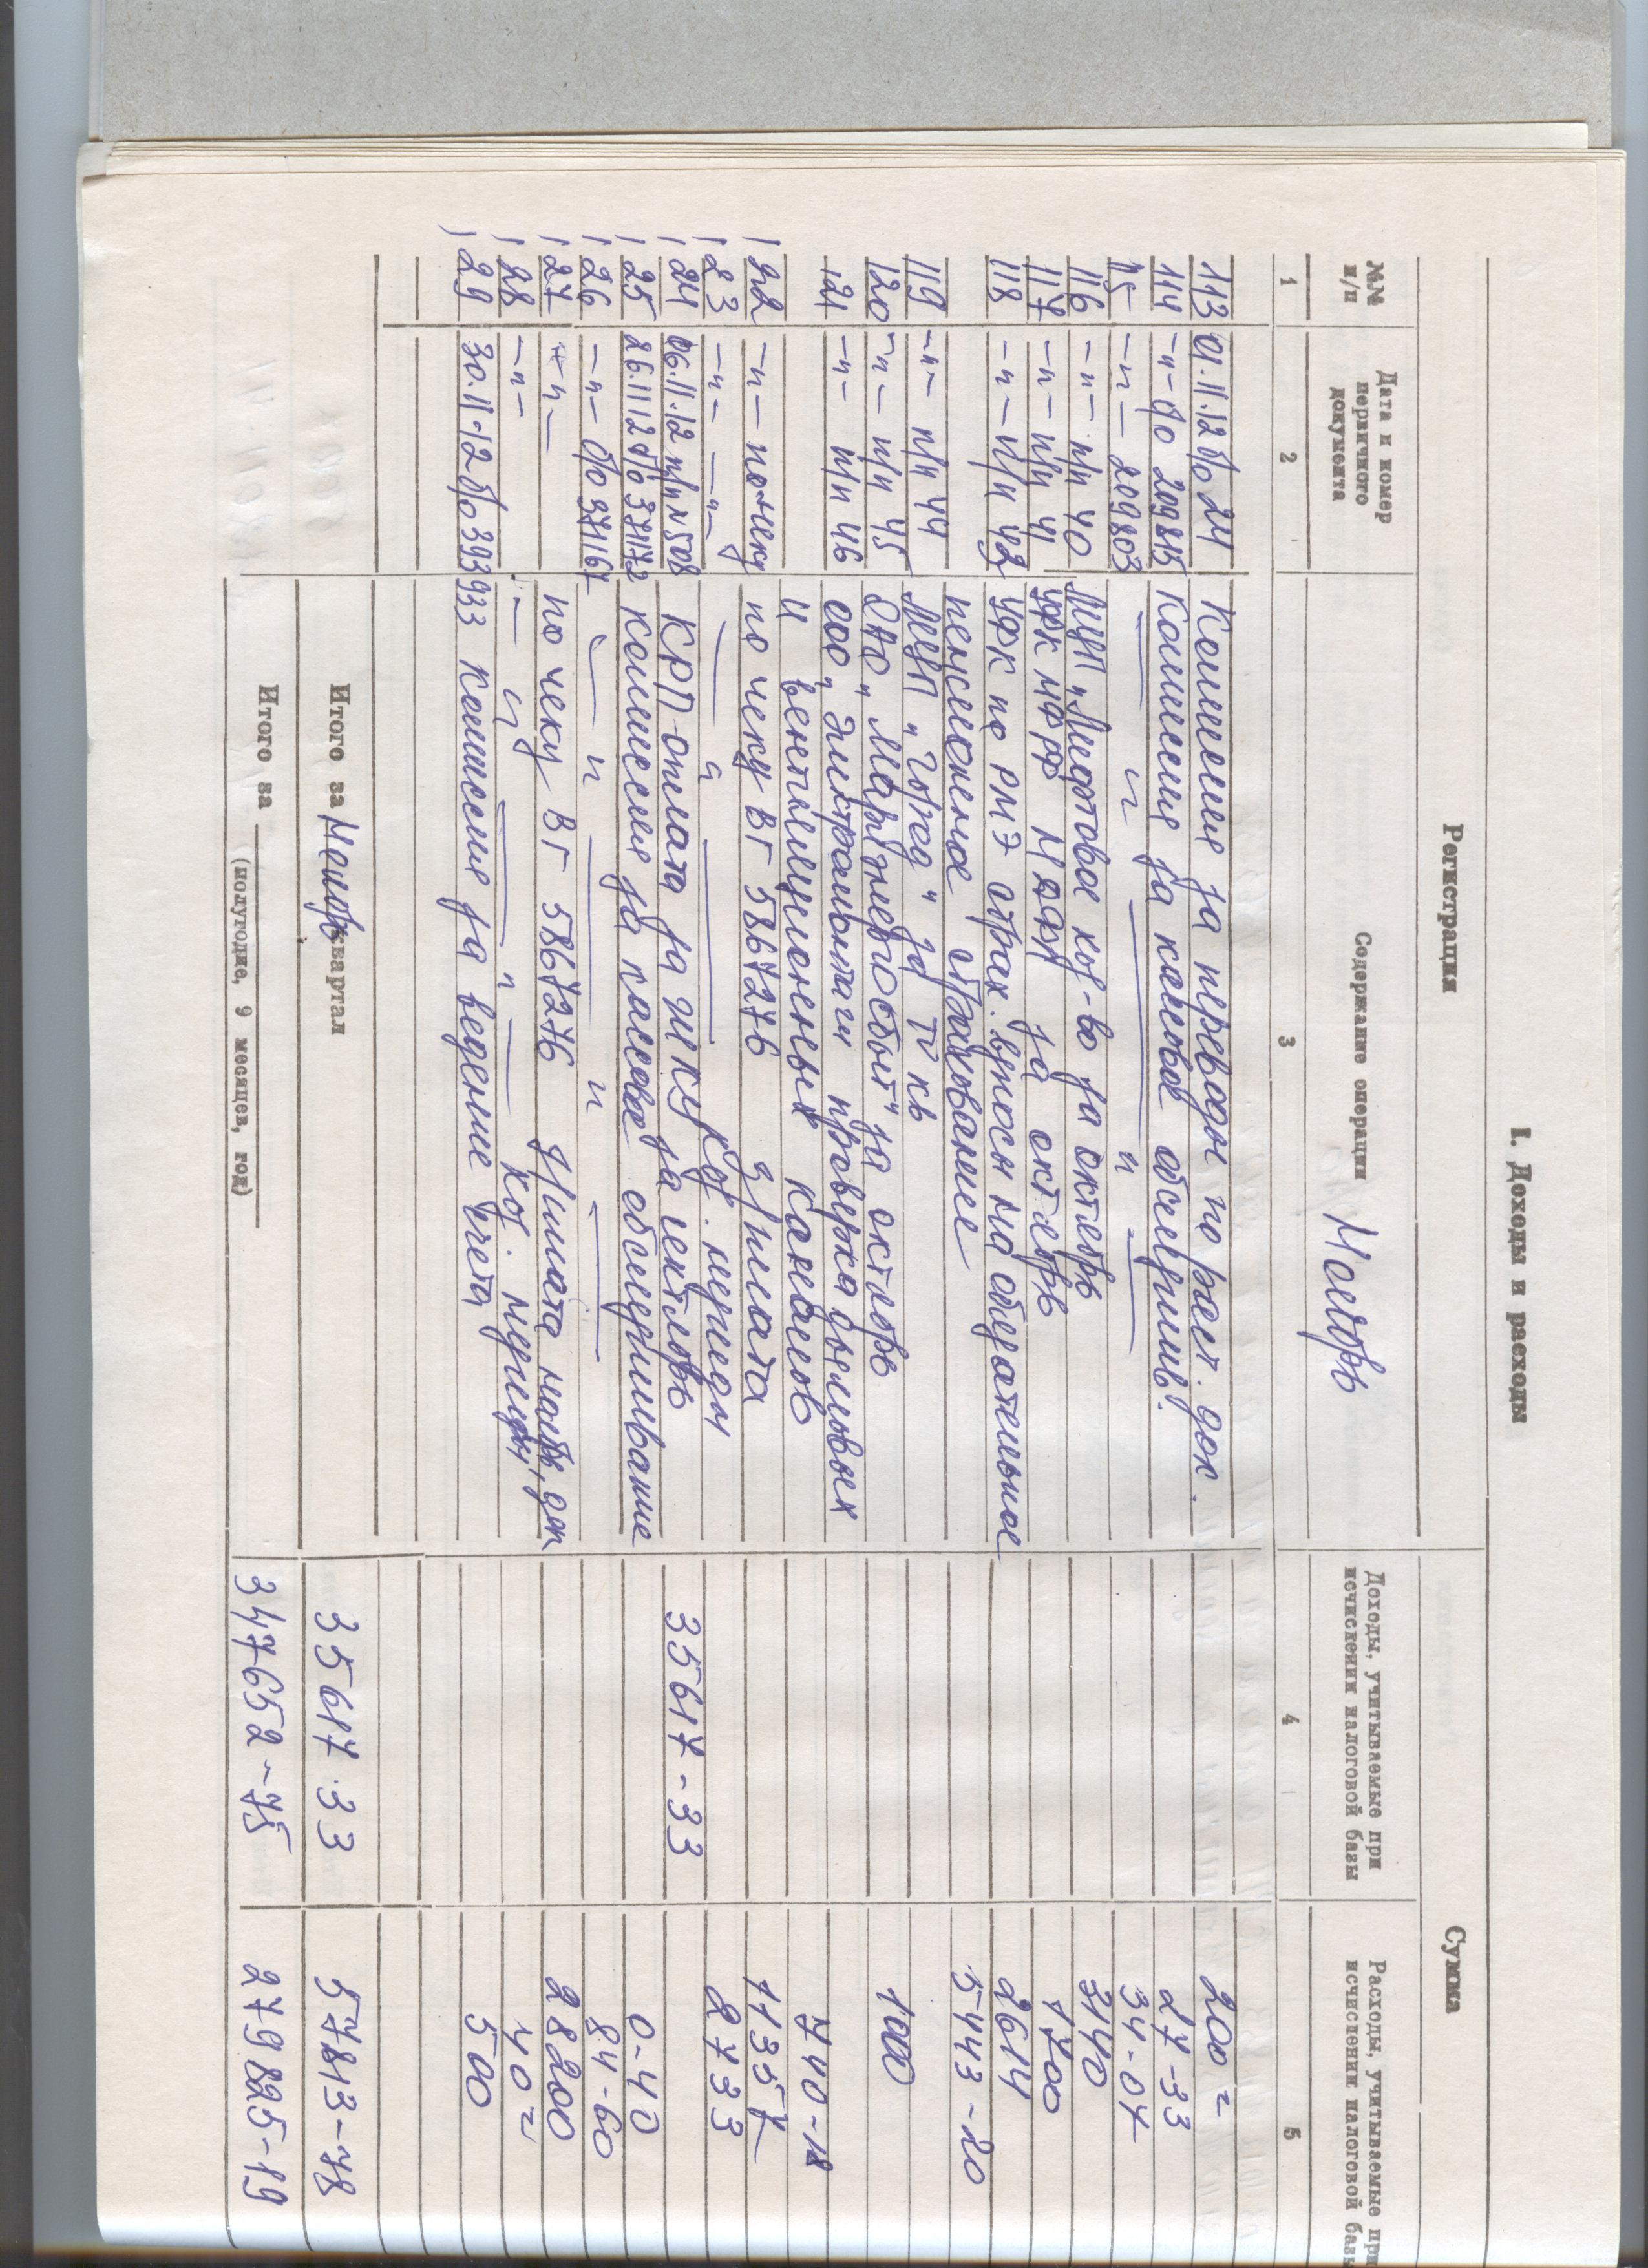 I. Доходы и расходы
Регистрация Сумма
№№ п/п Дата и номер первичного документа Содержание операции Ноябрь Доходы, учитываемые при исчислении налоговой базы Расходы, учитываемые при исчислении налоговой базы
1 2 3 4 5
113 01.11.12 б/о 24 Комиссия за переводы по расч. док. 200=
114 -"- б/о 209815 Комиссия за кассовое обслужив. 27-33
115 -"- 209803 -"- -"- 34-07
116 -"- п/п 40 МУП „Лифтовое хоз-во за октябрь 3140
117 -"- п/п 41 УФК МФ РФ НДФЛ за октябрь 1700
118 -"- п/п 43 УФК по РМЭ страх. взносы на обязательное 2614
пенсионное страхование 5443-20
119 -"- п/п 44 МУП „Город" за ТV кь
120 -"- п/п 45 ОАО „Мариэнергосбыт" за октябрь 1000
121 -"- п/п 46 ООО „Электромонтаж проверка дымовых
и вентиляционных каналов 740-18
122 -"- по чеку по чеку ВГ 5867276 з/плата 11357
123 -"- -"- -"- хоз. нужды 2733
124 06.11.12 п/п №508 КРП-оплата за ЖКУ за сентябрь 35617-33
125 26.11.12 б/о 37172 комиссия за кассовое обслуживание 0-40
126 -"- б/о 37167 -"- -"- 84-60
127 -"- по чеку ВГ 5867276 з/плата 28200
128 -"- -"- -"- хоз. нужды 40=
129 30.11.12 б/о 393933 комиссия за ведение счета 500
Итого за Ноябрь квартал 35617.33 57813-78
Итого за 347652-75 279825-19
(полугодие, 9 месяцев, год)